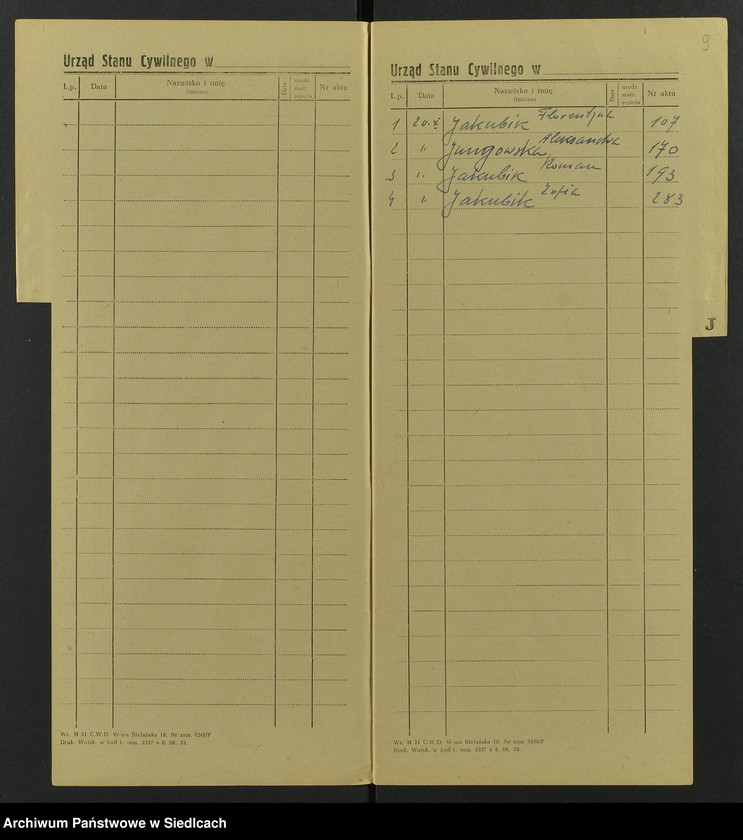 Urząd Stanu Cywilnego w
L.p. Data Nazwisko i imię (imiona) Data urodz. małż. zejścia Nr aktu
Wz. M 21 C.W.D. W-wa Bielańska 18. Nr zam. 9260/F
Druk. Wojsk. w Łodzi, zam. 2337 z 8. 08. 53.
9
Urząd Stanu Cywilnego w
L.p. Data Nazwisko i imię (imiona) Data urodz. małż. zejścia Nr aktu
1 20.X Jakubik Florentyna 107
2 " Jungowska Aleksandra 170
3 " Jakubik Roman 193
4 " Jakubik Zofia 283
J
Wz. M 21 C.W.D. W-wa Bielańska 18. Nr zam. 9260/F
Druk. Wojsk. w Łodzi, zam. 2337 z 8. 08. 53.
Archiwum Państwowe w Siedlcach